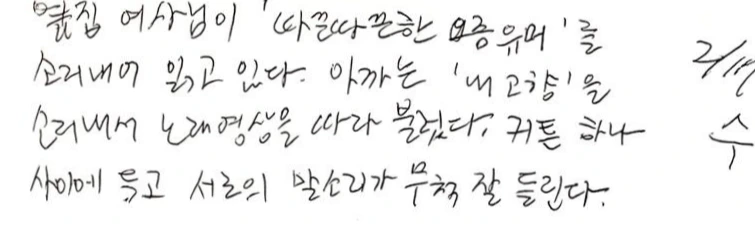 옆집 여사님이 '따끈따끈한 요즘유머'를
소리내어 읽고 있다. 아까는 '내 고향'을
소리내서 노래영상을 따라 불렀다. 커튼 하나
사이에 두고 서로의 말소리가 무척 잘 들린다.
수